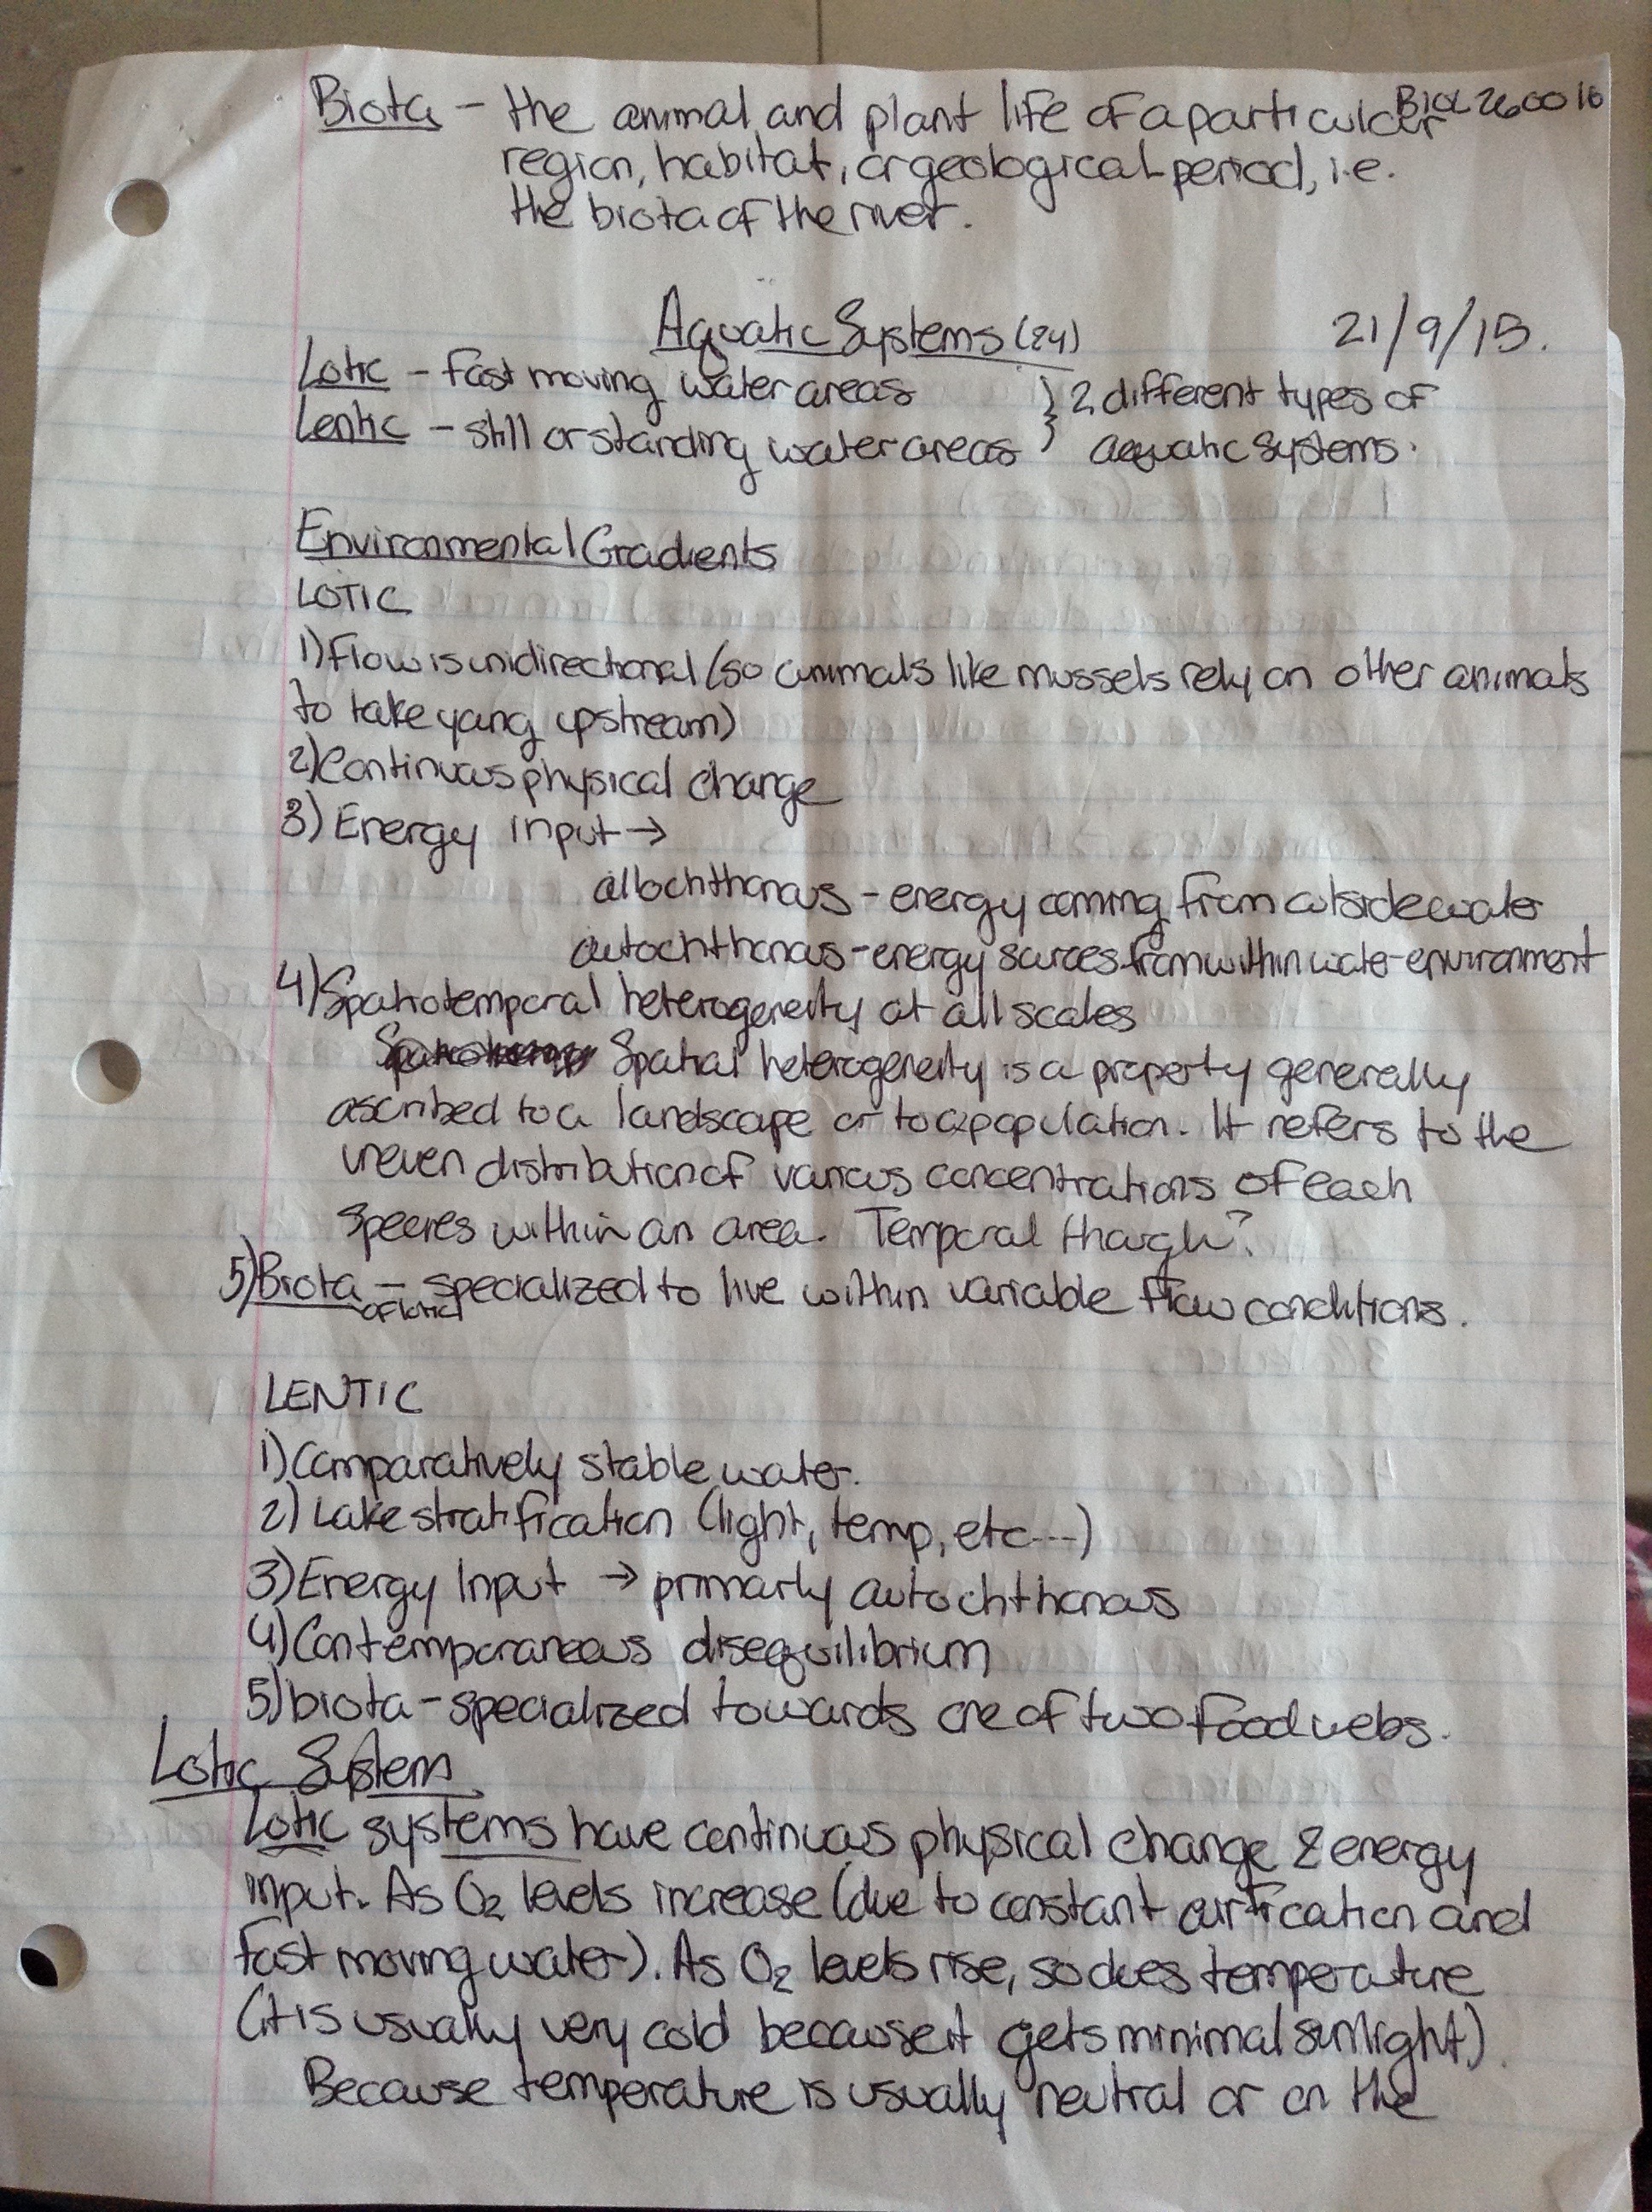 BIOL 2600 10
Biota - the animal and plant life of a particular
region, habitat, or geological period, i.e.
the biota of the river.
Aquatic Systems (24)
21/9/15.
Lotic - fast moving water areas
Lentic - still or standing water areas
} 2 different types of
aquatic systems.
Environmental Gradients
LOTIC
1) Flow is unidirectional (so animals like mussels rely on other animals
to take yong upstream)
2) Continuous physical change
3) Energy input →
allochthonous - energy coming from outside water
autochthonous - energy sources from within water environment
4) Spatiotemporal heterogeneity at all scales
Spatial heterogeneity is a property generally
ascribed to a landscape or to a population. It refers to the
uneven distribution of various concentrations of each
species within an area. Temporal though?
5) Biota - specialized to live within variable flow conditions.
of lotic
LENTIC
1) Comparatively stable water.
2) Lake stratification (light, temp, etc...)
3) Energy Input → primarly autochthonous
4) Contemporaneous disequilibrium
5) biota - specialized towards one of two food webs.
Lotic System
Lotic systems have continuous physical change & energy
input. As O2 levels increase (due to constant and
fast moving water). As O2 levels rise, so does temperature
(it is usually very cold because it gets minimal sunlight).
Because temperature is usually neutral or on the